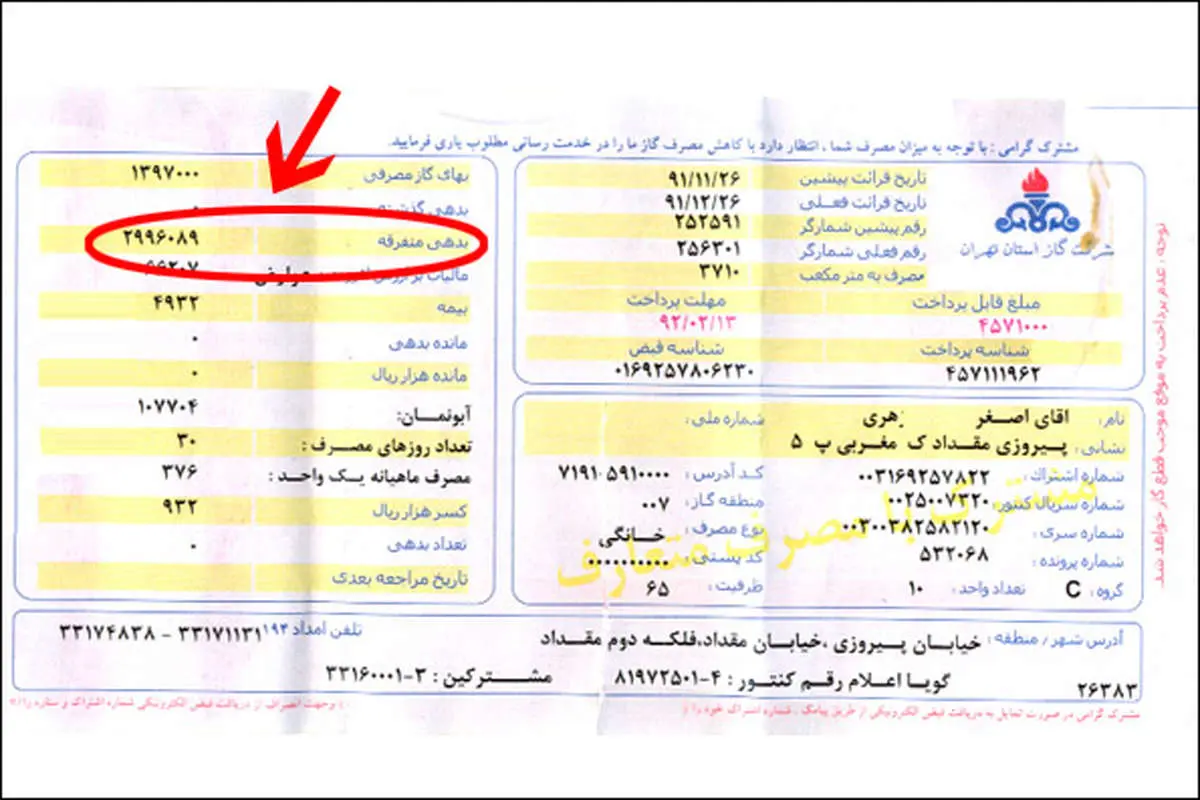 مشترک گرامی : با توجه به میزان مصرف شما ، انتظار دارد با کاهش مصرف گاز ما را در خدمت رسانی مطلوب یاری فرمایید.
شرکت گاز استان تهران
تاریخ قرائت پیشین ۹۱/۱۱/۲۶
تاریخ قرائت فعلی ۹۱/۱۲/۲۶
رقم پیشین شمارگر ۲۵۲۵۹۱
رقم فعلی شمارگر ۲۵۶۳۰۱
مصرف به متر مکعب ۳۷۱۰
مبلغ قابل پرداخت مهلت پرداخت
۴۵۷۱۰۰۰ ۹۲/۰۲/۱۳
شناسه پرداخت شناسه قبض
۴۵۷۱۱۱۹۶۲ ۰۱۶۹۲۵۷۸۰۶۲۳۰
نام: اقای اصغر هری شماره ملی:
نشانی: پیروزی مقداد ک مغربی پ ۵
شماره اشتراک: ۰۰۳۱۶۹۲۵۷۸۲۲ کد آدرس: ۷۱۹۱۰۵۹۱۰۰۰۰
شماره سریال کنتور: ۰۰۲۵۰۰۷۳۲۰ منطقه گاز: ۰۰۷
شماره سری: ۰۰۳۰۰۳۸۲۵۸۲۱۲۰ نوع مصرف: خانگی
شماره پرونده: ۵۳۲۰۶۸ کد پستی: ۰۰۰۰۰۰۰۰۰۰
گروه: C تعداد واحد: ۱۰ ظرفیت: ۶۵
مشترک با مصرف متعارف
بهای گاز مصرفی ۱۳۹۷۰۰۰
بدهی گذشته ۰
بدهی متفرقه ۲۹۹۶۰۸۹
مالیات بر ۶۶۲۰۷
بیمه ۴۹۳۲
مانده بدهی ۰
مانده هزار ریال ۰
آبونمان: ۱۰۷۷۰۴
تعداد روزهای مصرف : ۳۰
مصرف ماهیانه یک واحد : ۳۷۶
کسر هزار ریال ۹۳۲
تعداد بدهی ۰
تاریخ مراجعه بعدی
آدرس شهر / منطقه : خیابان پیروزی ،خیابان مقداد،فلکه دوم مقداد تلفن امداد ۱۹۴ ۳۳۱۷۱۱۳۱ - ۳۳۱۷۴۸۳۸
۲۶۳۸۳ گویا اعلام رقم کنتور : ۴-۸۱۹۷۲۵۰۱ مشترکین : ۳-۳۳۱۶۰۰۰۱
مشترک گرامی در صورت تمایل به دریافت قبض الکترونیکی از طریق پیامک ، شماره اشتراک خود را
جهت انصراف از دریافت قبض الکترونیکی شماره اشتراک و ستاره را
توجه : عدم پرداخت به موقع موجب قطع گاز خواهد شد.